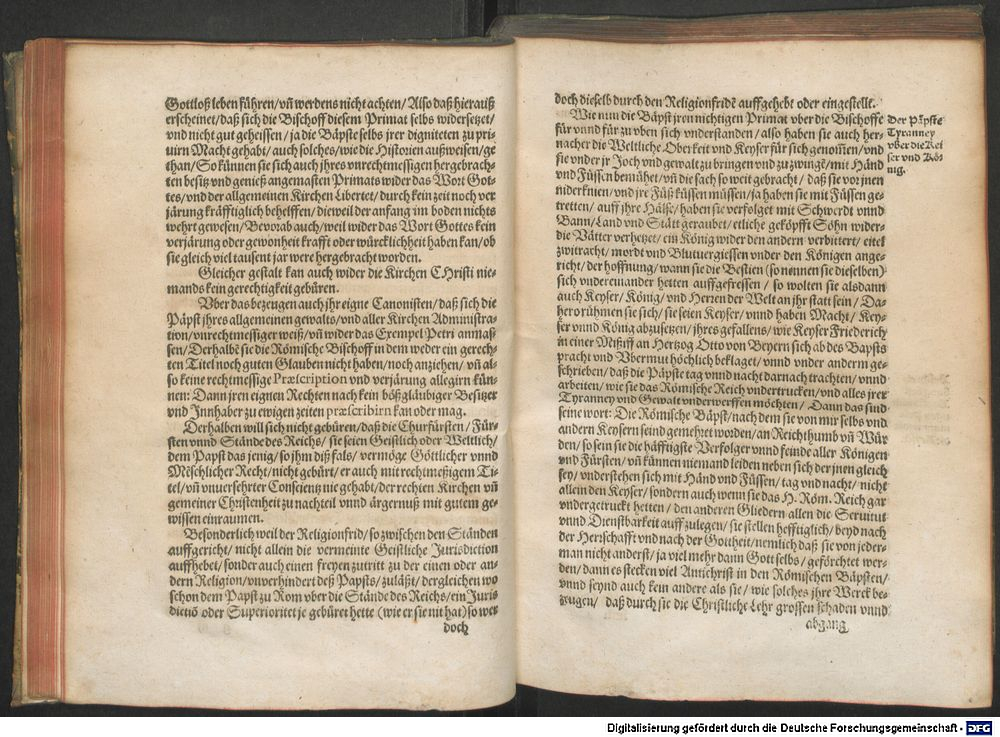 Gottloß leben führen/ vñ werdens nicht achten/ Also daß hierauß
erscheinet/ daß sich die Bischoff diesem Primat selbs widersetzet/
vnd nicht gut geheissen/ ja die Bäpste selbs jrer digniteten zu pri-
uirn Macht gehabt/ auch solches/ wie die Historien außweisen/ ge-
than/ So künnen sie sich auch jhres vnrechtmessigen hergebrach-
ten besitz vnd genieß angemasten Primats wider das Wort Got-
tes/ vnd der allgemeinen Kirchen Libertet/ durch kein zeit noch ver
järung kräfftiglich behelffen/ dieweil der anfang im boden nichts
wehrt gewesen/ Bevorab auch/ weil wider das Wort Gottes kein
verjärung oder gewonheit krafft oder würcklichheit haben kan/ ob
sie gleich viel tausent jar were hergebracht worden.
Gleicher gestalt kan auch wider die Kirchen CHristi nie-
mands kein gerechtigkeit gebüren.
Vber das bezeugen auch jhr eigne Canonisten/ daß sich die
Päpst jhres allgemeinen gewalts/ vnd aller Kirchen Administra-
tion/ vnrechtmessiger weiß/ vñ wider das Exempel Petri anmas-
sen/ Derhalbē sie die Römische Bischoff in dem weder ein gerech-
ten Titel noch guten Glauben nicht haben/ noch anziehen/ vñ al-
so keine rechtmessige Præscription vnd verjärung allegirn kün-
nen: Dann jren eignen Rechten nach kein bößgläubiger Besitzer
vnd Innhaber zu ewigen zeiten præscribirn kan oder mag.
Derhalben will sich nicht gebüren/ daß die Churfürsten/ Für-
sten vnnd Stände des Reichs/ sie seien Geistlich oder Weltlich/
dem Papst das jenig/ so jhm diß fals/ vermöge Göttlicher vnnd
Mēschlicher Recht/ nicht gebürt/ er auch mit rechtmeßigem Ti-
tel/ vñ unversehrter Conscientz nie gehabt/ der rechten Kirchen vñ
gemeiner Christenheit zu nachteil vnnd ärgernuß mit gutem ge-
wissen einraumen.
Besonderlich weil der Religionfrid/ so zwischen den Ständen
auffgericht/ nicht allein die vermeinte Geistliche Jurisdiction
auffhebet/ sonder auch einen freyen zutritt zu der einen oder an-
dern Religion/ vnverhindert deß Papsts/ zuläßt/ dergleichen wo
schon dem Papst zu Rom vber die Stände des Reichs/ ein Juris
dictiō oder Superioritet je gebüret hette (wie er sie nit hat) so wer
doch
doch dieselb durch den Religionfridē auffgehebt oder eingestellt.
Wie nun die Bäpst jren nichtigen Primat vber die Bischoffe
für vnnd für zu vben sich vnderstanden/ also haben sie auch her-
nacher die Weltliche Oberkeit vnd Keyser für sich genom̃en/ vnd
sie vnder jr Joch vnd gewalt zu bringen vnd zu zwingē/ mit Händ
vnd Füssen bemühet/ vñ die sach so weit gebracht/ daß sie vor jnen
niderknien/ vnd jre Füß küssen müssen/ ja haben sie mit Füssen ge-
tretten/ auff jhre Hälse/ haben sie verfolget mit Schwerdt vnnd
Bann/ Land vnd Stätt geraubet/ etliche geköpfft Söhn wider-
die Vätter verhetzet/ ein König wider den andern verbittert/ eitel
zwitracht/ mordt vnd Blutvergiessen vnder den Königen ange-
richt/ der hoffnung/ wann sie die Bestien (so nennen sie dieselben)
sich vndereinander hetten auffgefressen/ so wolten sie alsdann
auch Keyser/ König/ vnd Herzen der Welt an jhr statt sein/ Da-
hero rühmen sie sich/ sie seien Keyser/ vnnd haben Macht/ Key-
ser vnnd König abzusetzen/ jhres gefallens/ wie Keyser Friederich
in einer Missiff an Hertzog Otto von Beyern sich ab des Bapsts
pracht vnd Vbermut höchlich beklaget/ vnnd vnder anderm ge-
schrieben/ daß die Päpste tag vnnd nacht darnach trachten/ vnnd
arbeiten/ wie sie das Römische Reich vndertrucken/ vnd alles jrer
Tyranney vnd Gewalt vnderwerffen möchten/ Dann das sind
seine wort: Die Römische Bäpst/ nach dem sie von mir selbs vnd
andern Keysern seind gemehret worden/ an Reichthumb vñ Wür
den/ so sein sie die häfftigste Verfolger vnnd feinde aller Königen
vnd Fürsten/ vñ künnen niemand leiden neben sich der jnen gleich
sey/ vnderstehen sich mit Händ vnd Füssen/ tag vnd nacht/ nicht
allein den Keyser/ sondern auch wenn sie das H. Röm. Reich gar
vndergetruckt hetten/ den anderen Gliedern allen die Servitut
vnnd Dienstbarkeit auffzulegen/ sie stellen hefftiglich/ beyd nach
der Herischafft vnd nach der Gottheit/ nemlich daß sie von jeder-
man nicht anderst/ ja viel mehr dann Gott selbs/ geförchtet wer-
den/ dann es stecken viel Antichrist in den Römischen Bäpsten/
vnnd seynd auch kein andere als sie/ wie solches jhre Werck be-
zeugen/ daß durch sie die Christliche Lehr grossen schaden vnnd
abgang
Der Päpste
Tyranney
vber die Kei
ser vnd Kö-
nig.
Digitalisierung gefördert durch die Deutsche Forschungsgemeinschaft - DFG